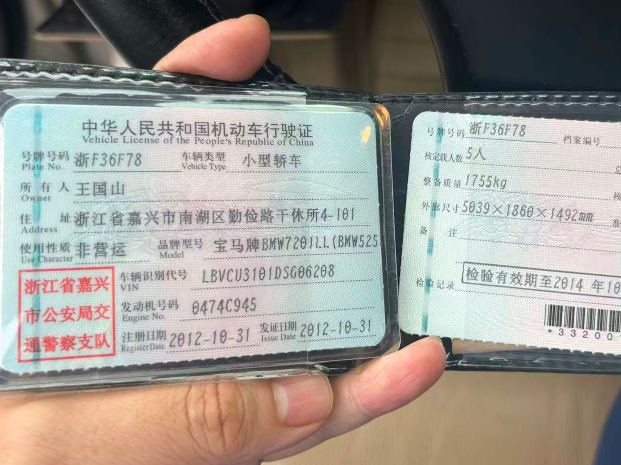 中华人民共和国机动车行驶证
Vehicle License of the People's Republic of China
号牌号码 浙F36F78 车辆类型 小型轿车
Plate No. Vehicle Type
所有人 王国山
Owner
住址 浙江省嘉兴市南湖区勤俭路干休所4-101
Address
使用性质 非营运 品牌型号 宝马牌BMW7201LL(BMW525
Use Character Model
浙江省嘉兴
市公安局交
通警察支队
车辆识别代号 LBVCU3101DSG06208
VIN
发动机号码 0474C945
Engine No.
注册日期 2012-10-31 发证日期 2012-10-31
Register Date Issue Date
号牌号码 浙F36F78 档案编号
核定载人数 5人
整备质量 1755kg
外廓尺寸 5039×1860×1492mm
备注
检验记录 检验有效期至2014 年10
*33200